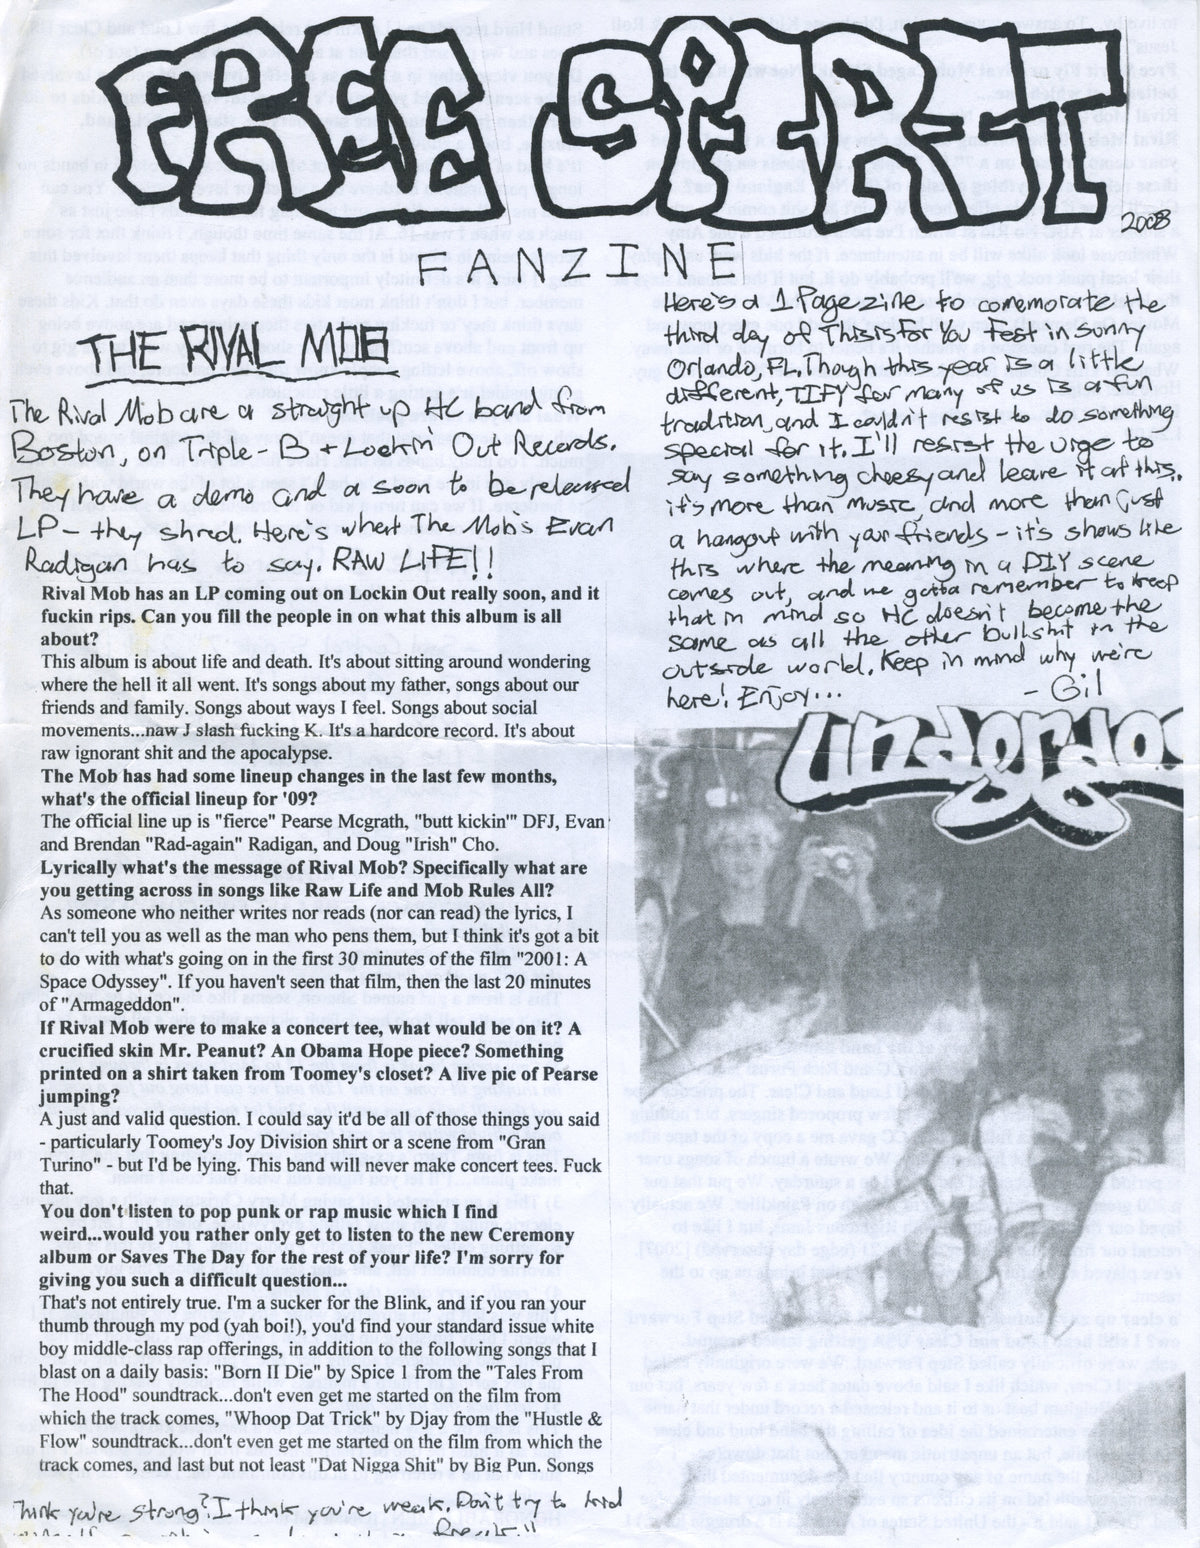 FREE SPIRIT
2008
FANZINE
THE RIVAL MOB
The Rival Mob are a straight up HC band from
Boston, on Triple-B + Lockin' Out Records.
They have a demo and a soon to be released
LP - they shred. Here's what The Mob's Evan
Radigan has to say. RAW LIFE!!
Rival Mob has an LP coming out on Lockin Out really soon, and it
fuckin rips. Can you fill the people in on what this album is all
about?
This album is about life and death. It's about sitting around wondering
where the hell it all went. It's songs about my father, songs about our
friends and family. Songs about ways I feel. Songs about social
movements...naw I slash fucking K. It's a hardcore record. It's about
raw ignorant shit and the apocalypse.
The Mob has had some lineup changes in the last few months,
what's the official lineup for '09?
The official line up is "fierce" Pearse Mcgrath, "butt kickin'" DFJ, Evan
and Brendan "Rad-again" Radigan, and Doug "Irish" Cho.
Lyrically what's the message of Rival Mob? Specifically what are
you getting across in songs like Raw Life and Mob Rules All?
As someone who neither writes nor reads (nor can read) the lyrics, I
can't tell you as well as the man who pens them, but I think it's got a bit
to do with what's going on in the first 30 minutes of the film "2001: A
Space Odyssey". If you haven't seen that film, then the last 20 minutes
of "Armageddon".
If Rival Mob were to make a concert tee, what would be on it? A
crucified skin Mr. Peanut? An Obama Hope piece? Something
printed on a shirt taken from Toomey's closet? A live pic of Pearse
jumping?
A just and valid question. I could say it'd be all of those things you said
- particularly Toomey's Joy Division shirt or a scene from "Gran
Turino" - but I'd be lying. This band will never make concert tees. Fuck
that.
You don't listen to pop punk or rap music which I find
weird...would you rather only get to listen to the new Ceremony
album or Saves The Day for the rest of your life? I'm sorry for
giving you such a difficult question...
That's not entirely true. I'm a sucker for the Blink, and if you ran your
thumb through my pod (yah boi!), you'd find your standard issue white
boy middle-class rap offerings, in addition to the following songs that I
blast on a daily basis: "Born II Die" by Spice 1 from the "Tales From
The Hood" soundtrack...don't even get me started on the film from
which the track comes, "Whoop Dat Trick" by Djay from the "Hustle &
Flow" soundtrack...don't even get me started on the film from which the
track comes, and last but not least "Dat Nigga Shit" by Big Pun. Songs
Think you're strong? I think you're weak. Don't try to
Here's a 1 Page zine to comemorate the
third day of This Is For You Fest in sunny
Orlando, FL. Though this year is a little
different, TIFY for many of us is a fun
tradition, and I couldn't resist to do something
special for it. I'll resist the urge to
say something cheesy and leave it at this..
it's more than music, and more than just
a hangout with your friends - it's shows like
this where the meaning in a DIY scene
comes out, and we gotta remember to keep
that in mind so HC doesn't become the
same as all the other bullshit in the
outside world. Keep in mind why we're
here! Enjoy...
- Gil
underdo